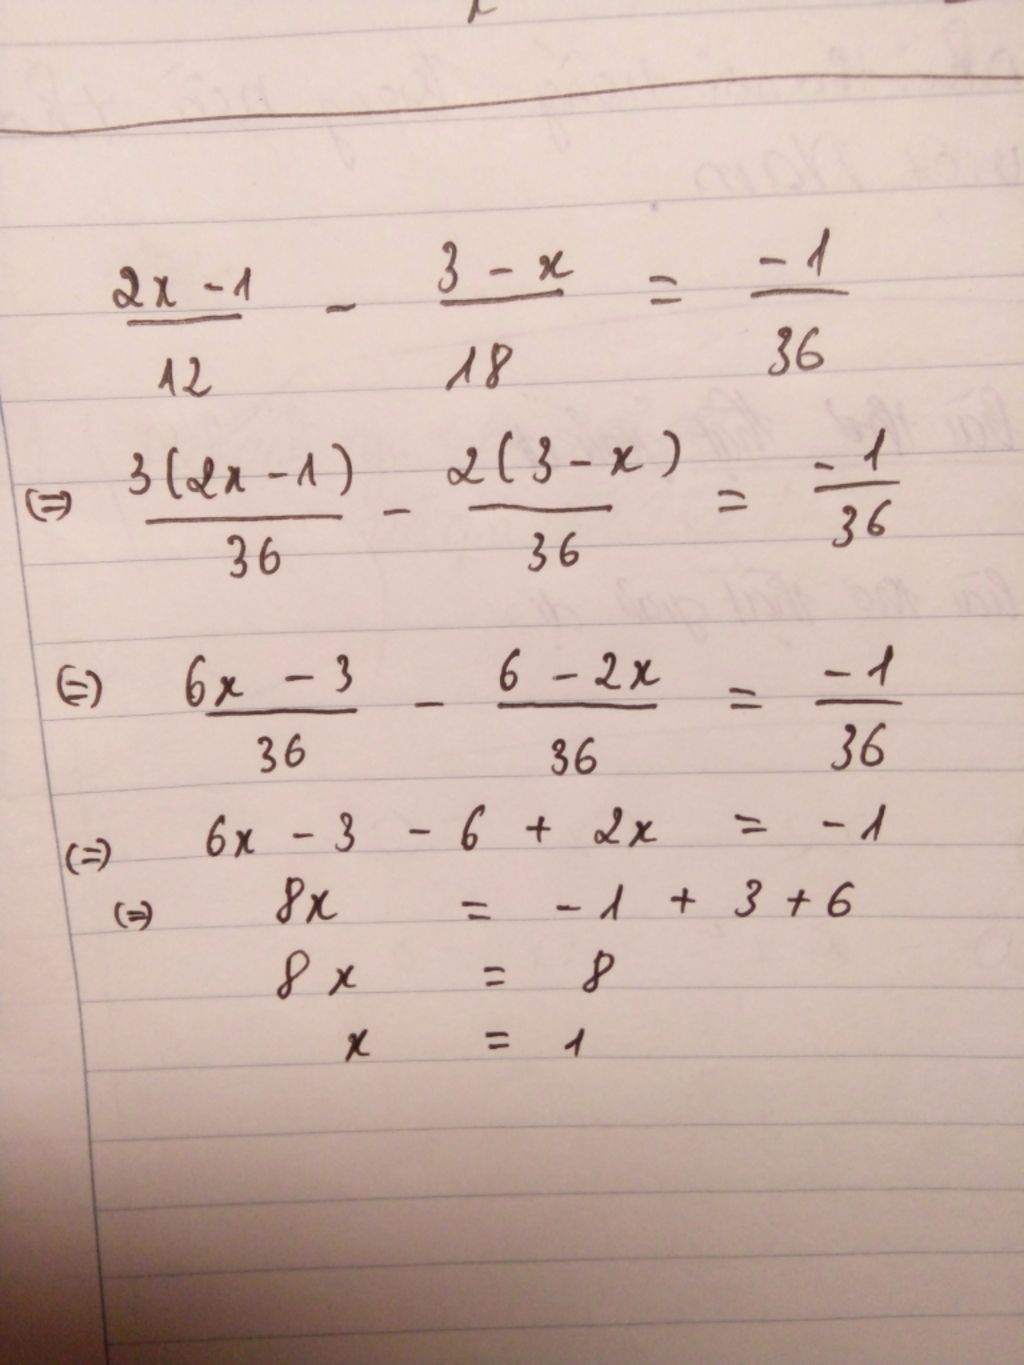 2x - 1 / 12 - 3 - x / 18 = -1 / 36
(=) 3(2x - 1) / 36 - 2(3 - x) / 36 = -1 / 36
(=) 6x - 3 / 36 - 6 - 2x / 36 = -1 / 36
(=) 6x - 3 - 6 + 2x = -1
(=) 8x = -1 + 3 + 6
8x = 8
x = 1